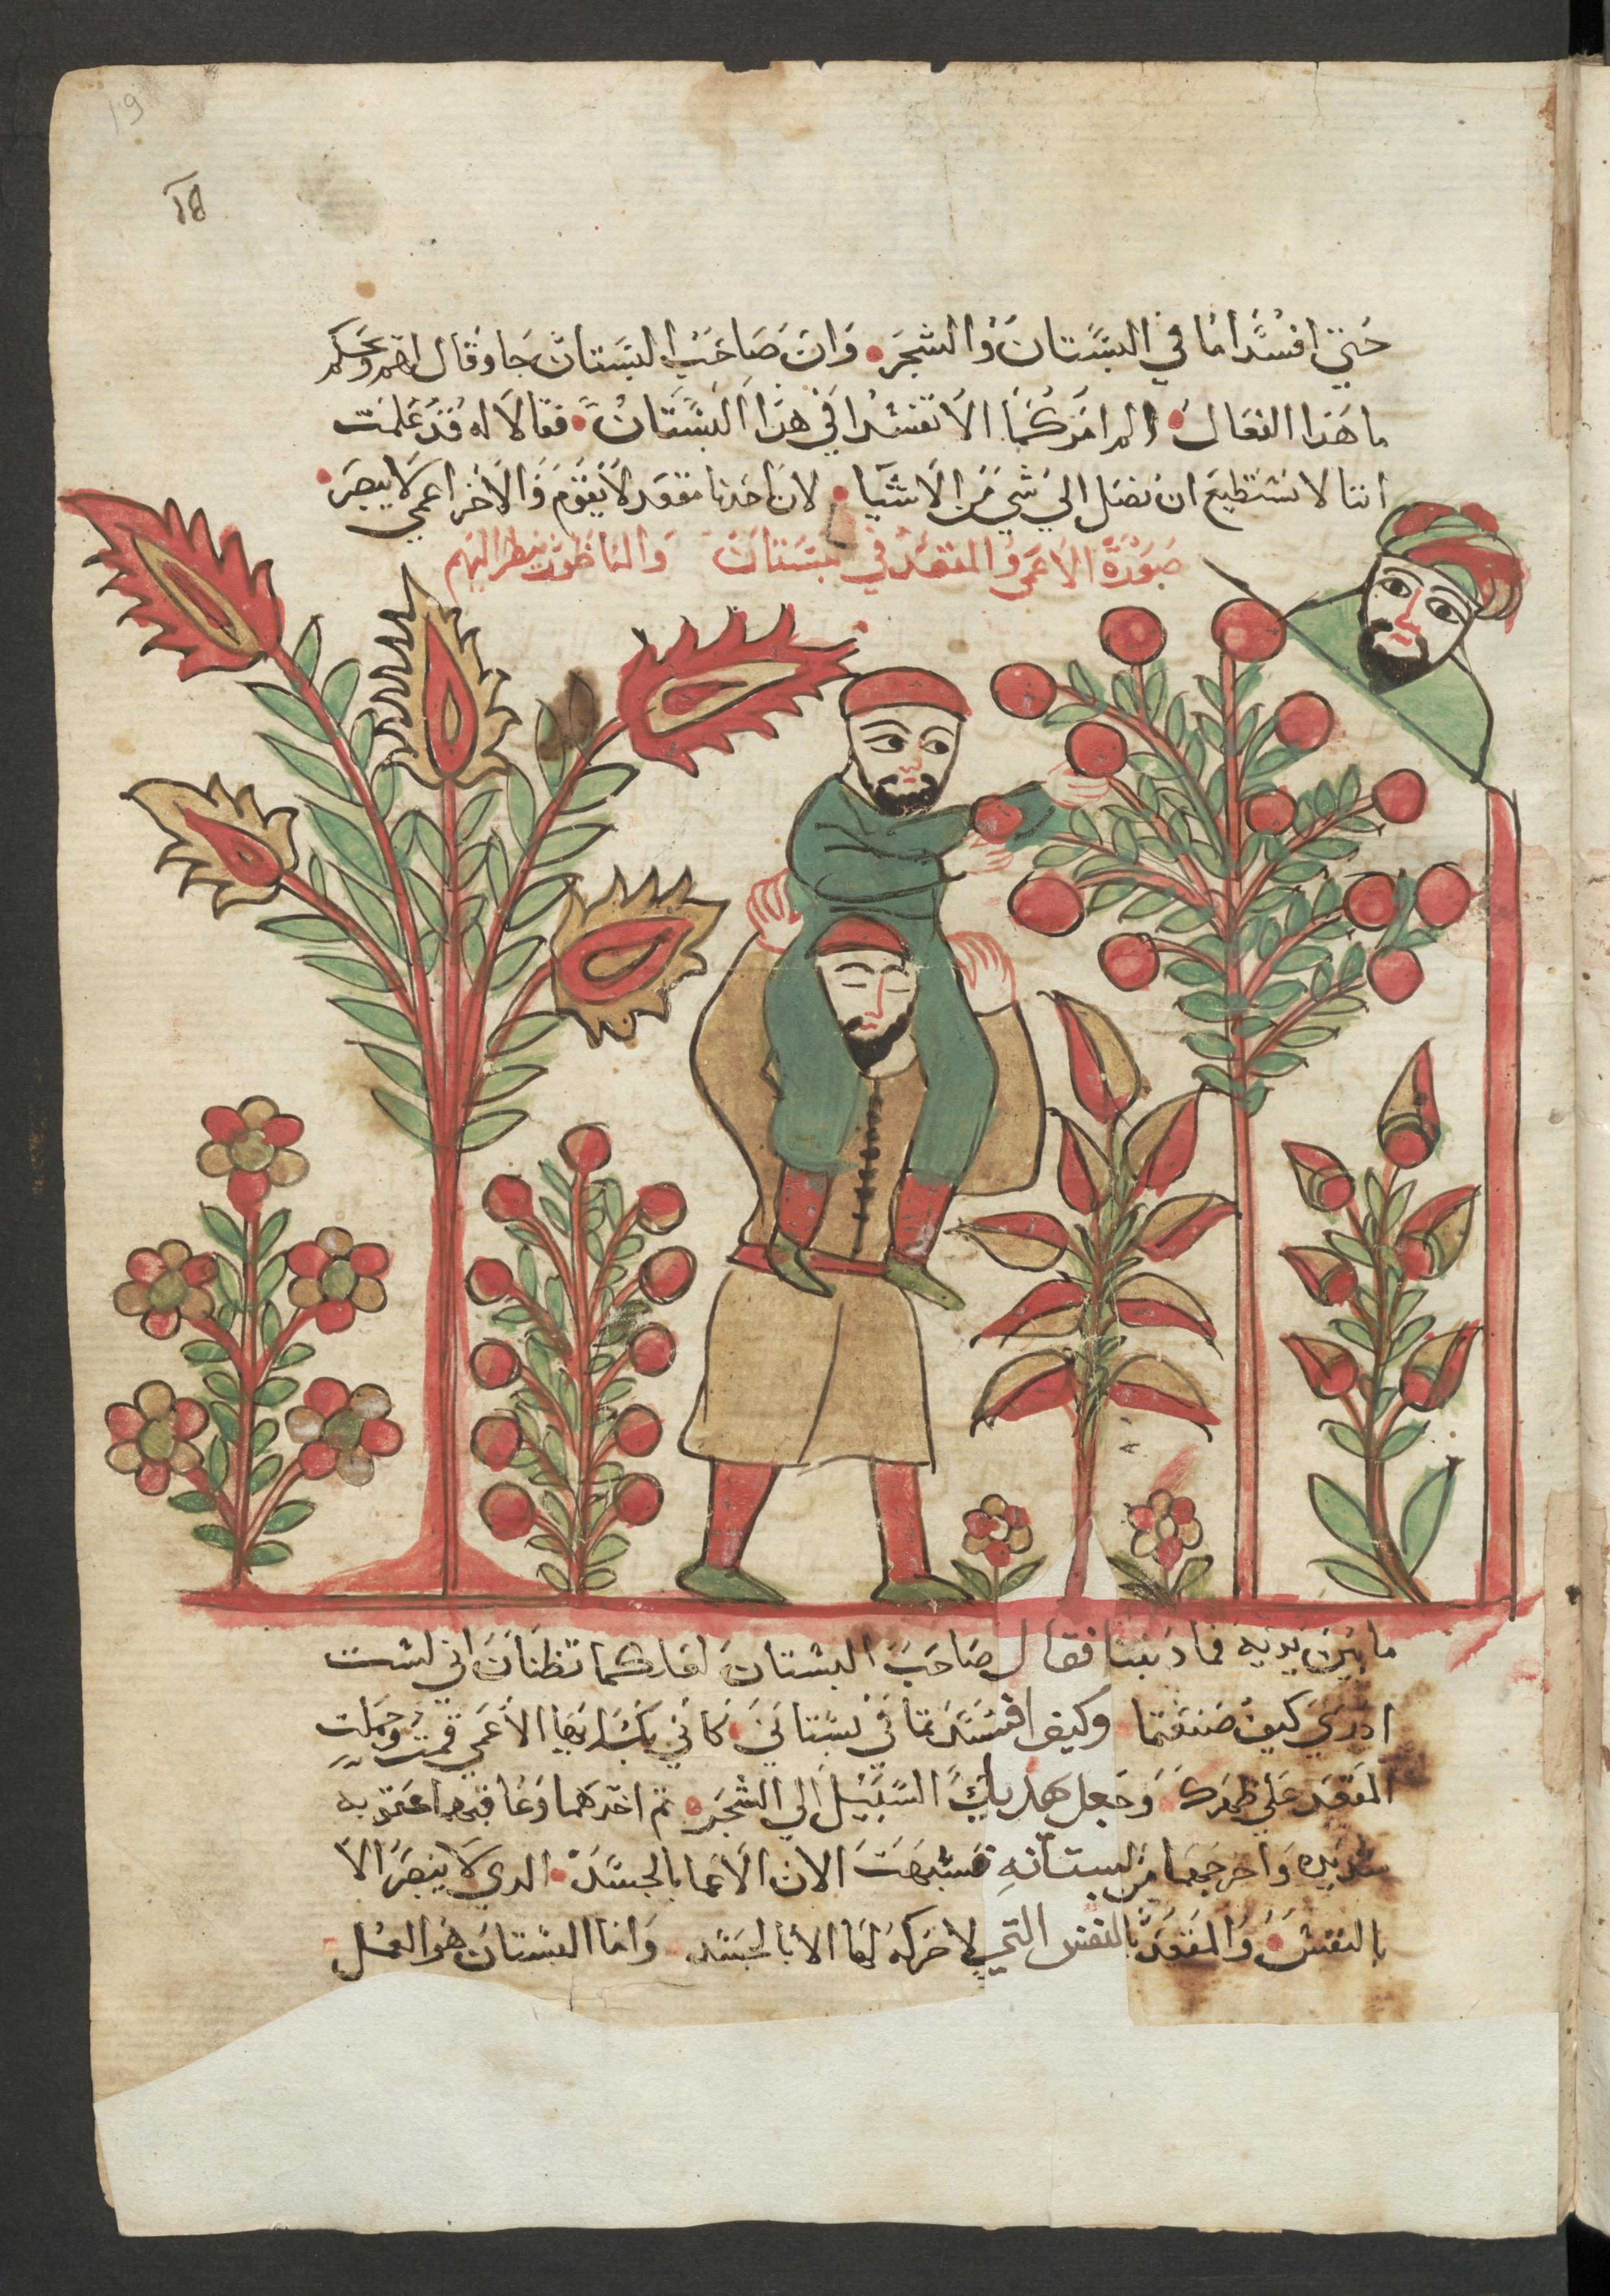 19
18
حتي افسدا ما في البستان والشجر • وان صاحب البستان جا وقال لهم ويحكم
ما هذا الفعال • الم امركما الا تفسدا في هذا البستان • فقالا له قد علمت
اننا لا نستطيع ان نصل الي شي من الاشيا • لان احدنا مقعد لا يقوم والاخر اعمي لا يبصر •
صورة الاعمي والمقعد في البستان والناظور ينظر اليهم
ما بين يديه فما ذنبنا فقال صاحب البستان لعلكما تظنان اني لست
ادري كيف صنعتما وكيف افسدتما في بستاني • كاني بك ايها الاعمي قمت وحملت
المقعد علي ظهرك وجعل يهديك السبيل الي الشجر • ثم اخذهما وعاقبهما عقوبه
شديده واخرجهما من بستانه فشبهت الان الاعما بالجسد • الدي لا يبصر الا
بالنفس • والمقعد بالنفس التي لا حركه لها الا بالجسد واما البستان هو العمل